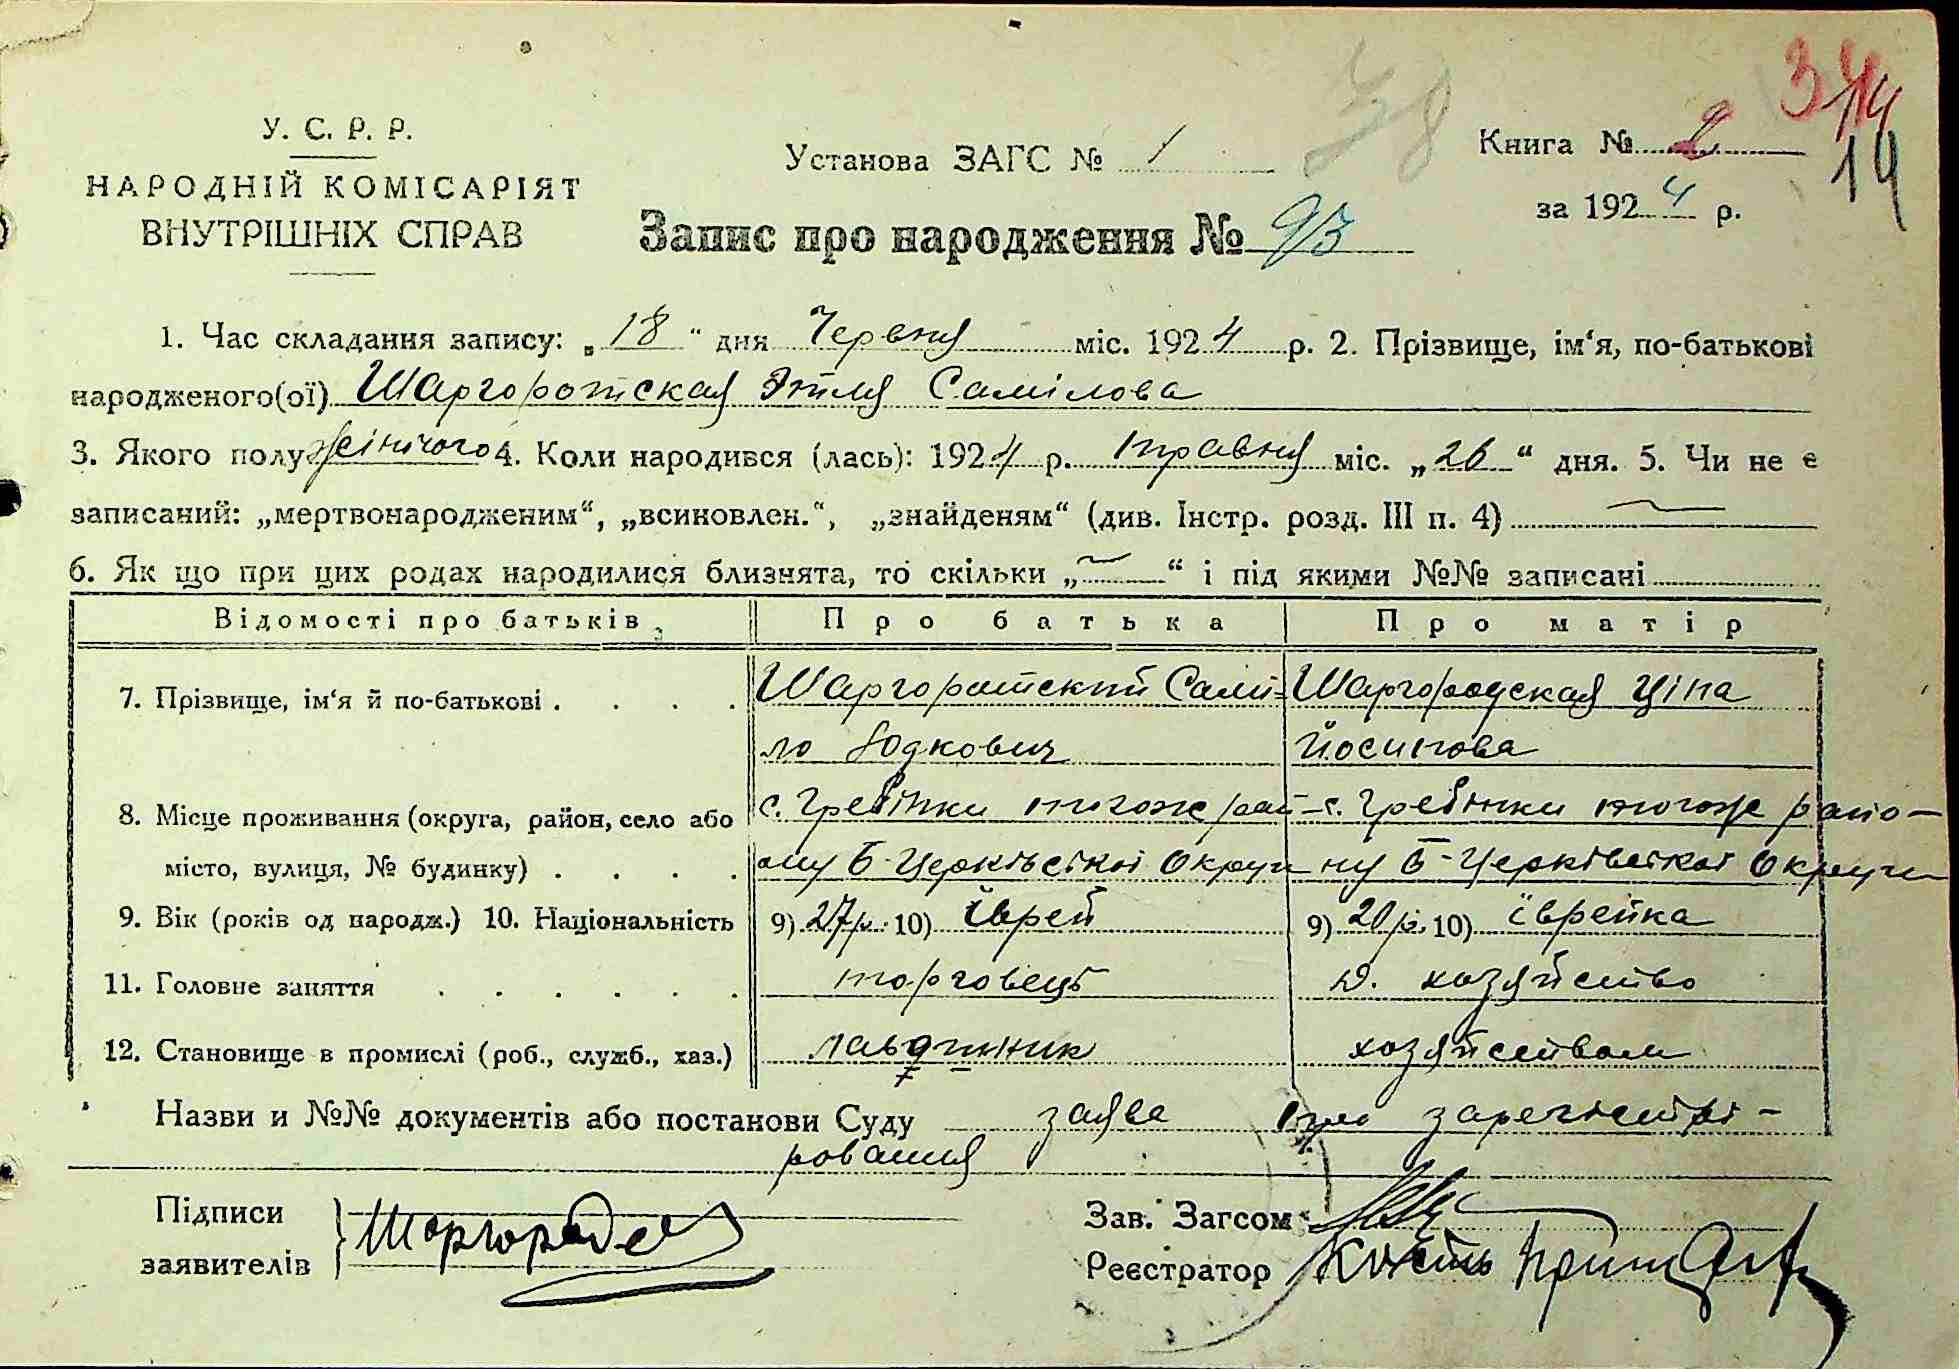 З 14
38
14
19
У. С. Р. Р.
НАРОДНІЙ КОМІСАРІЯТ
ВНУТРІШНІХ СПРАВ
Установа ЗАГС № 1
Книга № 2
за 1924 р.
Запис про народження № 93
1. Час складання запису: „18“ дня Червня міс. 1924 р. 2. Прізвище, ім‘я, по-батькові
народженого(ої) Шаргоротская Этля Самілова
3. Якого полу жіночого 4. Коли народився (лась): 1924 р. травня міс. „26“ дня. 5. Чи не є
записаний: „мертвонародженим“, „всиновлен.“, „знайденям“ (див. Інстр. розд. III п. 4)
6. Як що при цих родах народилися близнята, то скільки „—“ і під якими №№ записані
Відомості про батьків Про батька Про матір
7. Прізвище, ім‘я й по-батькові . . . . Шаргоротский Самі- Шаргородская Ціпа
ло Йосипова
8. Місце проживання (округа, район, село або с. Гребінки тогож рай- с. Гребінки тогож райо-
місто, вулиця, № будинку) . . . . ону Б-Церківскої Округи ну Б-Церківскої Округи
9. Вік (років од народж.) 10. Національність 9) 27 р. 10) Іврей 9) 20 р. 10) іврейка
11. Головне заняття . . . . . . торговець д. хозяйство
12. Становище в промислі (роб., служб., хаз.) лавошник хозяйством
Назви и №№ документів або постанови Суду заява про зарегістрі-
рования
Підписи
заявителів Шаргородс
Зав. Загсом
Реєстратор